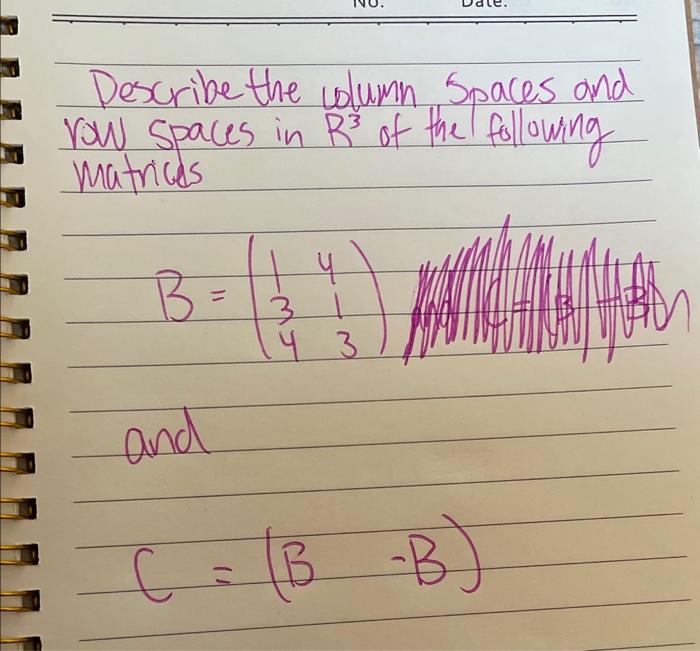 No. Date.
Describe the column spaces and
row spaces in R³ of the following
matrices
B = (1 4
3 1
4 3)
and
C = (B -B)